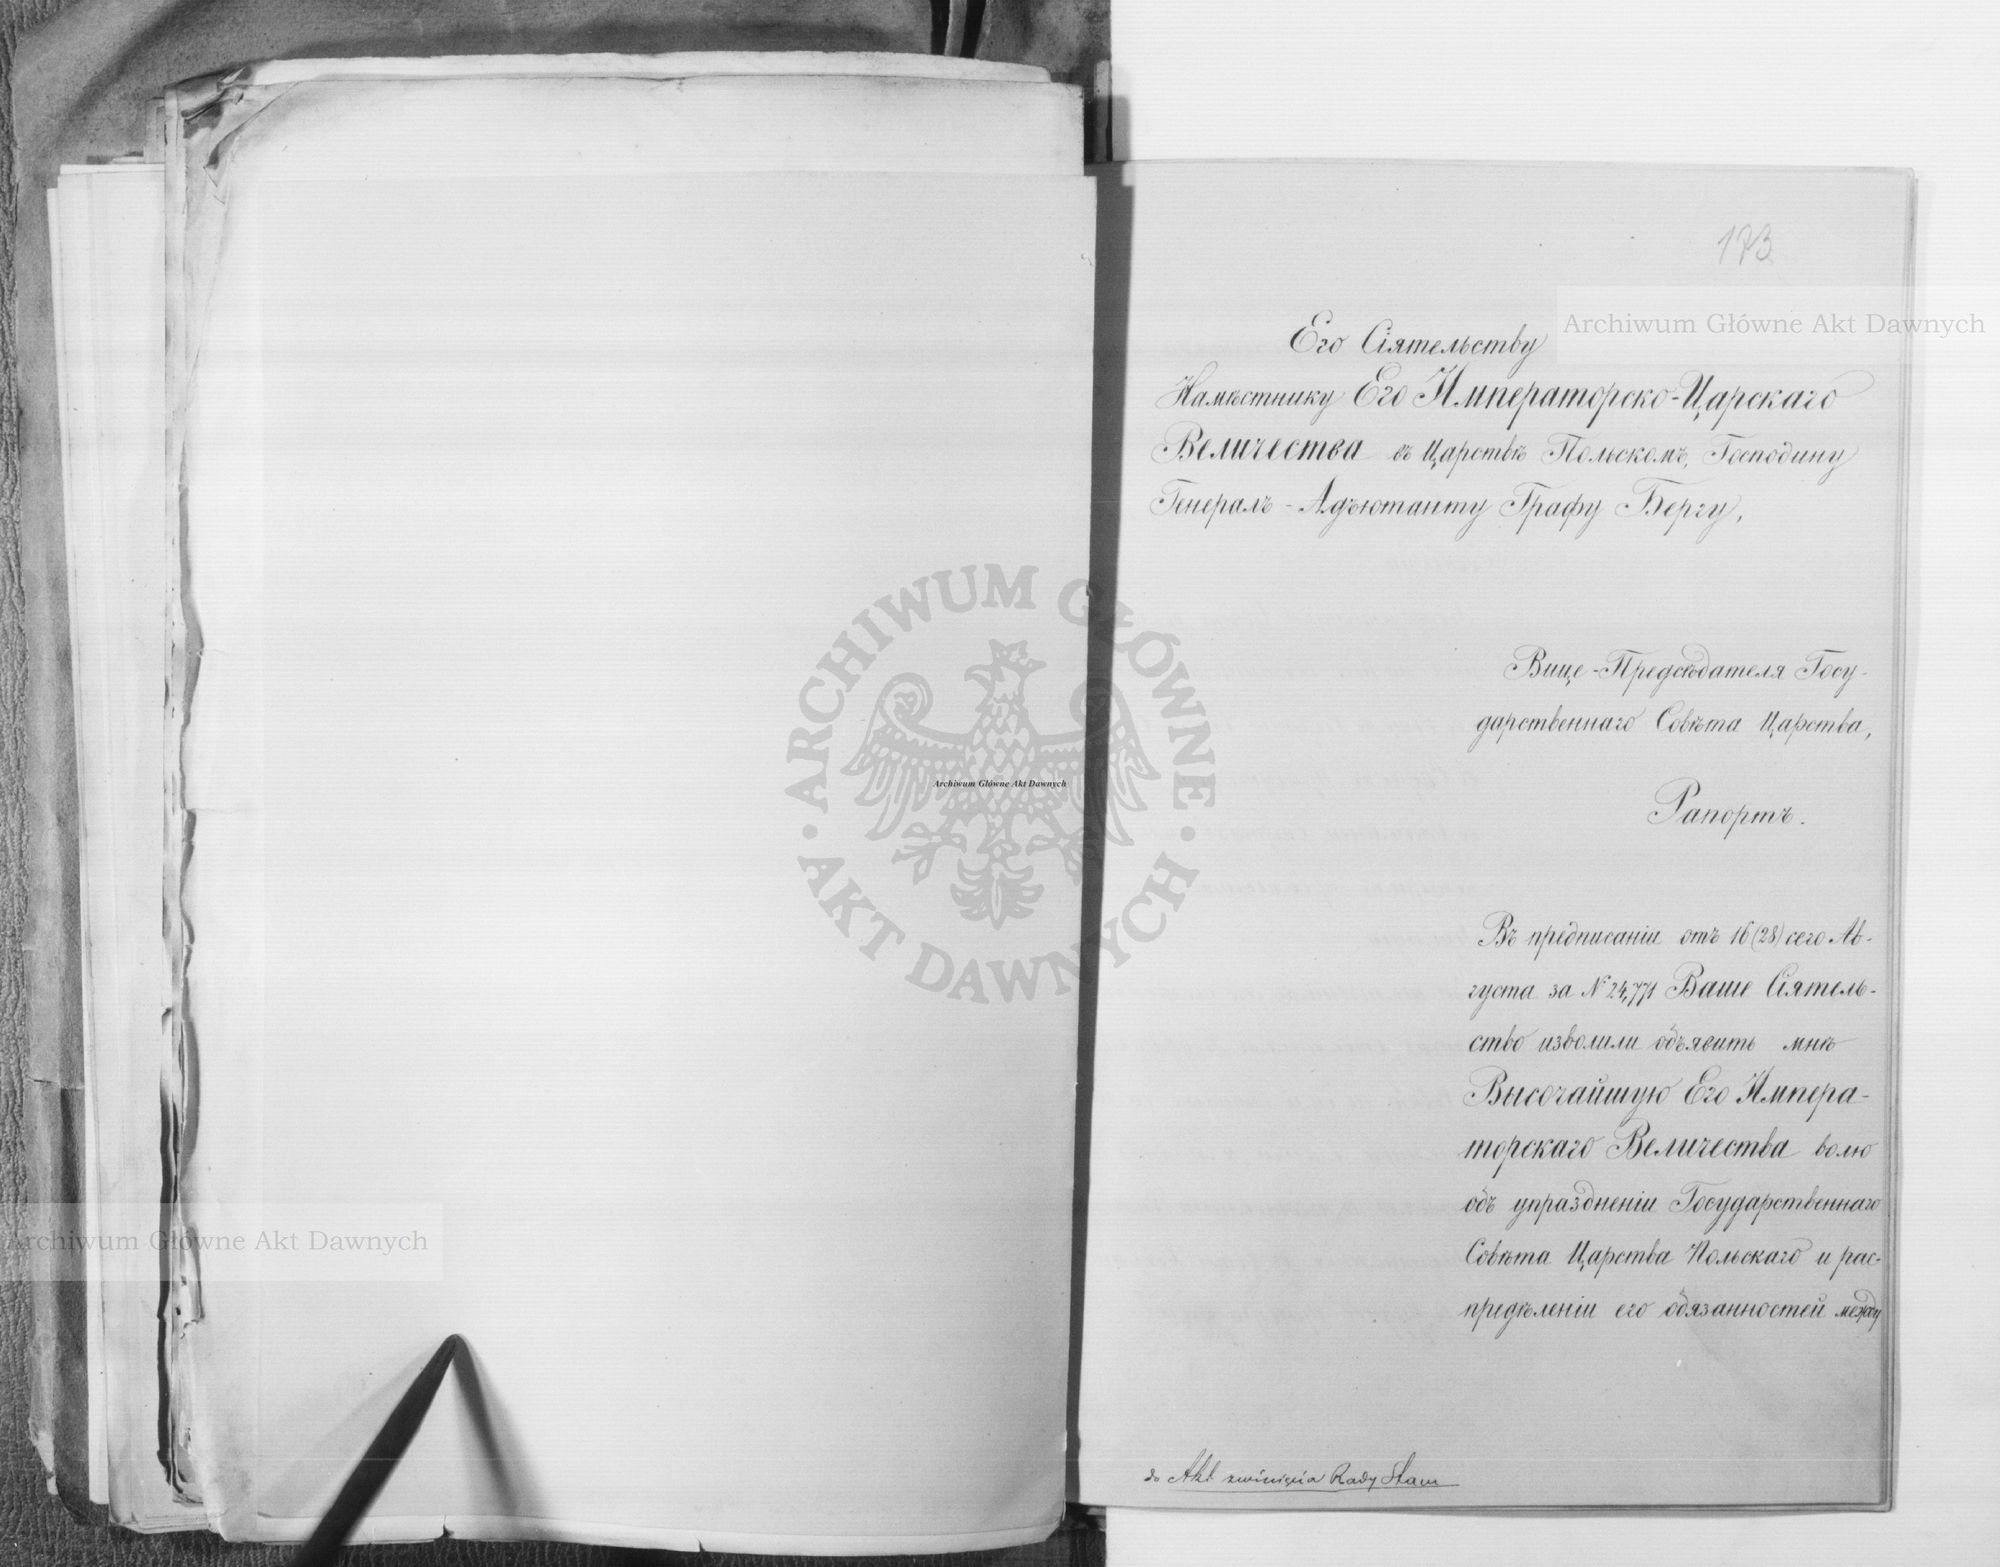 173
Archiwum Główne Akt Dawnych
Его Сіятельству
Намѣстнику Его Императорско-Царскаго
Величества въ Царствѣ Польскомъ, Господину
Генералъ-Адъютанту Графу Бергу,
Вице-Предсѣдателя Госу-
дарственнаго Совѣта Царства,
Рапортъ.
ARCHIWUM GŁÓWNE · AKT DAWNYCH ·
Archiwum Główne Akt Dawnych
Въ предписаніи отъ 16 (28) сего Ав-
густа за № 24,771 Ваше Сіятель-
ство изволили объявить мнѣ
Высочайшую Его Импера-
торскаго Величества волю
объ упраздненіи Государственнаго
Совѣта Царства Польскаго и рас-
предѣленіи его обязанностей между
Archiwum Główne Akt Dawnych
do Akt zwinięcia Rady Stanu